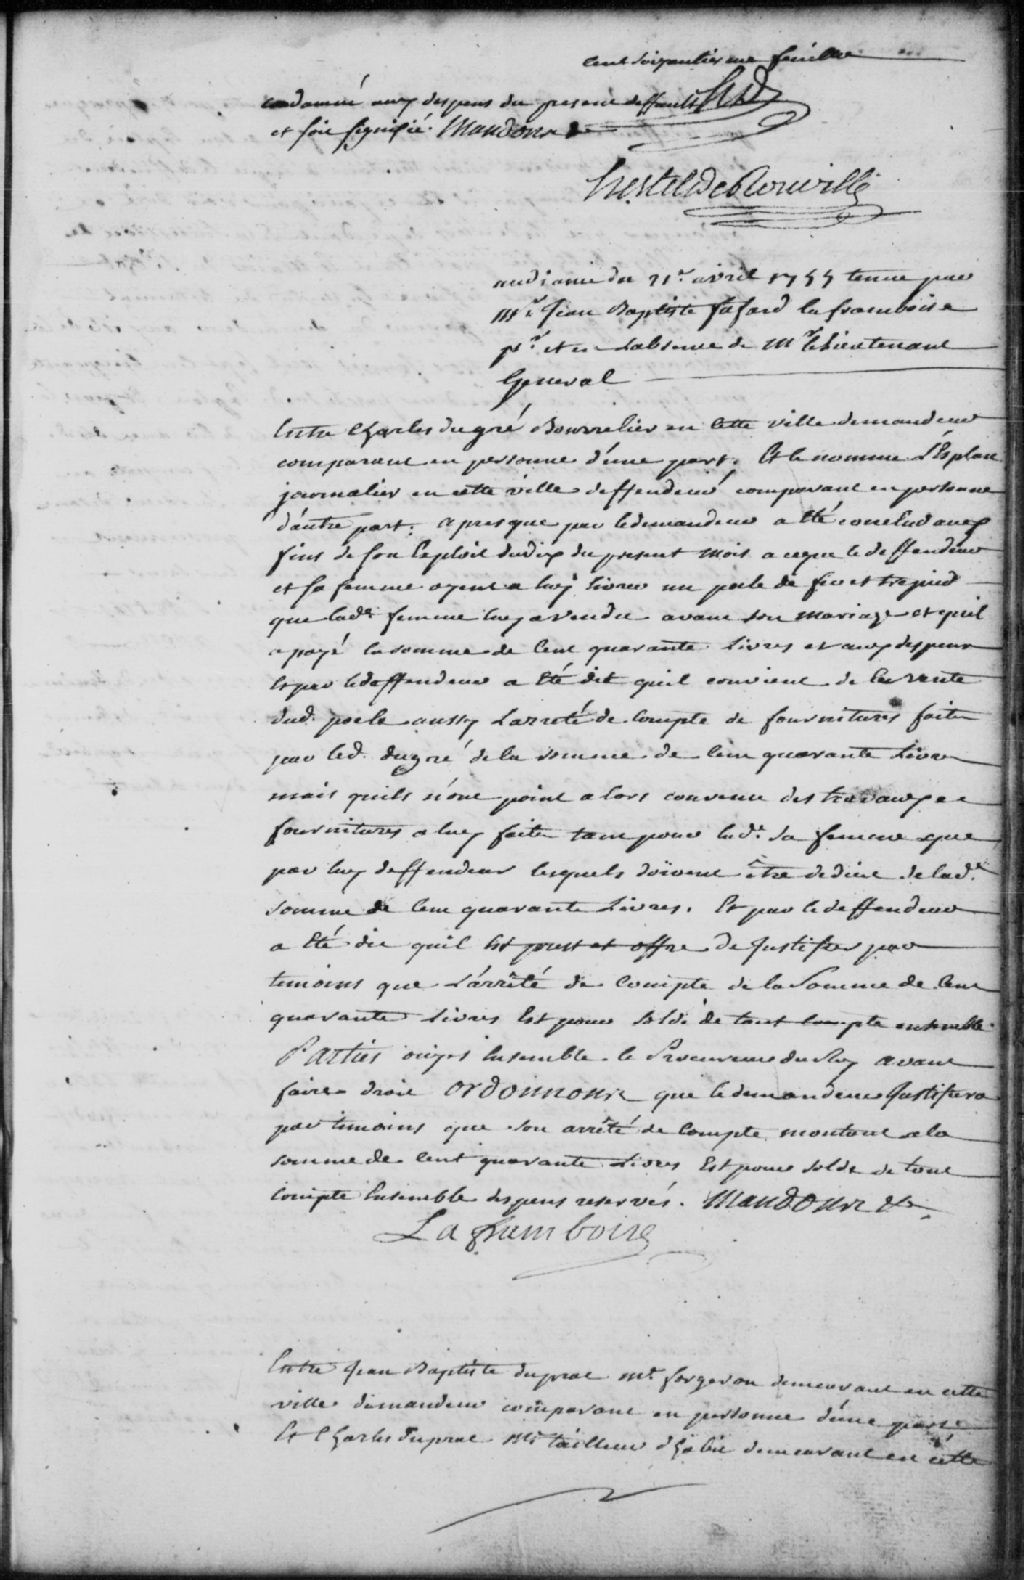 cent soixantiesme feuillet
condamné aux despens du present deffault HdR
et soit signifié. Mandons &
hertel De Rouville
audiance du 21e. avril 1755 tenue par
Mr. Jean Baptiste fafard la framboise
pr. et en labsence de Mr. le Lieutenant
General
Entre Charles dugré Bourrelier en cette ville demandeur
comparant en personne d'une part. Et le nommé L'Esplan
journalier en cette ville deffendeur comparant en personne
d'autre part. apres que par le demandeur a Eté conclud aux
fins de son Exploit du dix du present mois a ceque le deffendeur
et sa femme ayent a luy livrer un poele de fer et trepied
que lade. femme luy a vendu avant son mariage et quil
a payé la somme de Cent quarante Livres et aux despens
Et par le deffendeur a Eté dit quil convient de la vente
dud. poele aussy Larreté de Compte de fournitures faites
par led. dugré de la somme de Cent quarante Livres
mais quils n'ont point alors convenu des travaux et
fournitures a luy faites tant pour lade. sa femme que
par luy deffendeur lesquels doivent être dedui de lade.
somme de Cent quarante Livres. Et par le deffendeur
a Eté dit quil Est prest et offre de Justifier par
temoins que L'arrêté de Compte de la Somme de Cent
quarante Livres Est pour solde de tout compte ensemble.
Parties ouyes Ensemble le Procureur du Roy avant
faire droit Ordonnons que le demandeur Justifiera
par temoins que son arrêté de Compte montant a la
somme de Cent quarante Livres Est pour solde de tout
Compte Ensemble despens reservés. Mandons &
La framboise
Entre Jean Baptiste duprat Mt. forgeron demeurant en cette
ville demandeur comparant en personne d'une part
Et Charles duprat Mt tailleur d'habit demeurant en cette